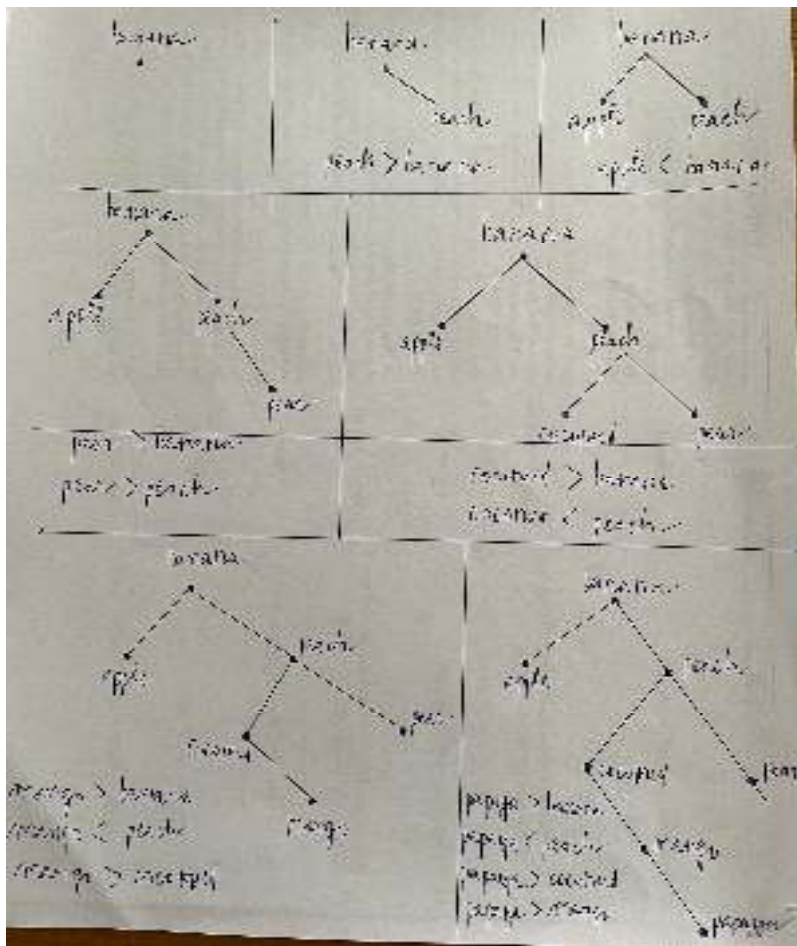 banana
banana
peach
peach > banana
banana
apple
peach
apple < banana
banana
apple
peach
pear
pear > banana
pear > peach
banana
apple
peach
coconut
pear
coconut > banana
coconut < peach
banana
apple
peach
coconut
pear
mango
mango > banana
mango < peach
mango > coconut
banana
apple
peach
coconut
pear
mango
papaya
papaya > banana
papaya < peach
papaya > coconut
papaya > mango